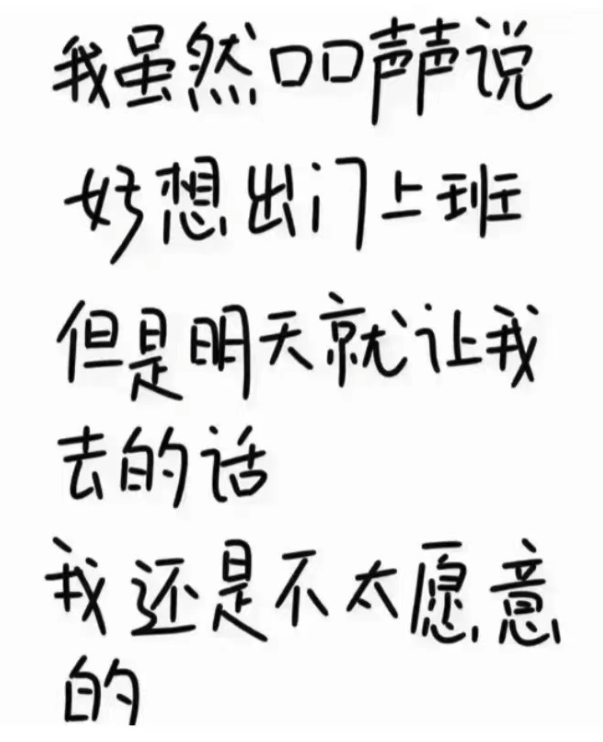 我虽然口口声声说
好想出门上班
但是明天就让我
去的话
我还是不太愿意
的